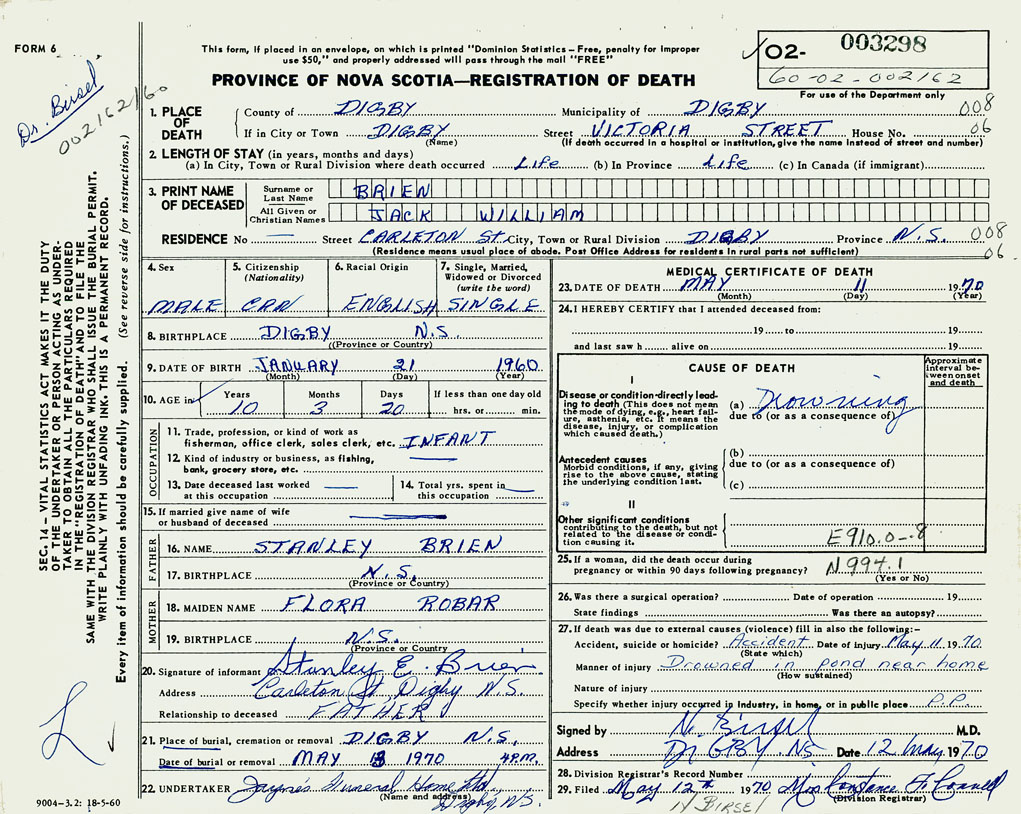 FORM 6
This form, if placed in an envelope, on which is printed "Dominion Statistics – Free, penalty for improper
use $50," and properly addressed will pass through the mail "FREE"
PROVINCE OF NOVA SCOTIA—REGISTRATION OF DEATH
02- 003298
60-02-002162
For use of the Department only
Dr. Birsel
002162/60
SEC. 14 – VITAL STATISTICS ACT MAKES IT THE DUTY
OF THE UNDERTAKER OR PERSON ACTING AS UNDER-
TAKER TO OBTAIN ALL THE PARTICULARS REQUIRED
IN THE "REGISTRATION OF DEATH" AND TO FILE THE
SAME WITH THE DIVISION REGISTRAR WHO SHALL ISSUE THE BURIAL PERMIT.
WRITE PLAINLY WITH UNFADING INK. THIS IS A PERMANENT RECORD.
Every item of information should be carefully supplied. (See reverse side for instructions.)
1. PLACE OF DEATH
County of DIGBY Municipality of DIGBY 008
If in City or Town DIGBY Street VICTORIA STREET House No. 06
(Name) (If death occurred in a hospital or institution, give the name instead of street and number)
2. LENGTH OF STAY (in years, months and days)
(a) In City, Town or Rural Division where death occurred Life (b) In Province Life (c) In Canada (if immigrant)
3. PRINT NAME OF DECEASED
Surname or Last Name BRIEN
All Given or Christian Names JACK WILLIAM
RESIDENCE No — Street CARLETON ST. City, Town or Rural Division DIGBY Province N.S. 008
(Residence means usual place of abode. Post Office Address for residents in rural parts not sufficient) 06
4. Sex MALE
5. Citizenship (Nationality) CAN
6. Racial Origin ENGLISH
7. Single, Married, Widowed or Divorced (write the word) SINGLE
8. BIRTHPLACE DIGBY N.S.
((Province or Country)
9. DATE OF BIRTH JANUARY 21 1960
(Month) (Day) (Year)
10. AGE in Years Months Days If less than one day old
10 3 20 hrs. or min.
OCCUPATION
11. Trade, profession, or kind of work as
fisherman, office clerk, sales clerk, etc. INFANT
12. Kind of industry or business, as fishing,
bank, grocery store, etc. —
13. Date deceased last worked at this occupation —
14. Total yrs. spent in this occupation —
15. If married give name of wife
or husband of deceased —
FATHER
16. NAME STANLEY BRIEN
17. BIRTHPLACE N.S.
(Province or Country)
MOTHER
18. MAIDEN NAME FLORA ROBAR
19. BIRTHPLACE N.S.
(Province or Country
20. Signature of informant Stanley E. Brien
Address Carleton St, Digby N.S.
Relationship to deceased FATHER
21. Place of burial, cremation or removal DIGBY N.S.
Date of burial or removal MAY 1970 4P.M.
22. UNDERTAKER Jayne's Funeral Home Ltd.
(Name and address) Digby, N.S.
9004–3.2: 18-5-60
MEDICAL CERTIFICATE OF DEATH
23. DATE OF DEATH MAY 11 1970
(Month) (Day) (Year)
24. I HEREBY CERTIFY that I attended deceased from:
19 to 19
and last saw h alive on 19
CAUSE OF DEATH
Approximate interval between onset and death
I
Disease or condition directly leading to death (This does not mean the mode of dying, e.g., heart failure, asthenia, etc. It means the disease, injury, or complication which caused death.)
(a) Drowning
due to (or as a consequence of)
Antecedent causes
Morbid conditions, if any, giving rise to the above cause, stating the underlying condition last.
(b)
due to (or as a consequence of)
(c)
II
Other significant conditions
contributing to the death, but not related to the disease or condition causing it.
E910.0-.8
25. If a woman, did the death occur during
pregnancy or within 90 days following pregnancy? N994.1
(Yes or No)
26. Was there a surgical operation? Date of operation 19
State findings Was there an autopsy?
27. If death was due to external causes (violence) fill in also the following:–
Accident, suicide or homicide? Accident Date of injury May 11 1970
(State which)
Manner of injury Drowned in pond near home
(How sustained)
Nature of injury
Specify whether injury occurred in industry, in home, or in public place P.P.
Signed by N. Birsel M.D.
Address DIGBY, NS Date 12 May 1970
28. Division Registrar's Record Number
29. Filed May 12th 1970
(Division Registrar)
N BIRSEL